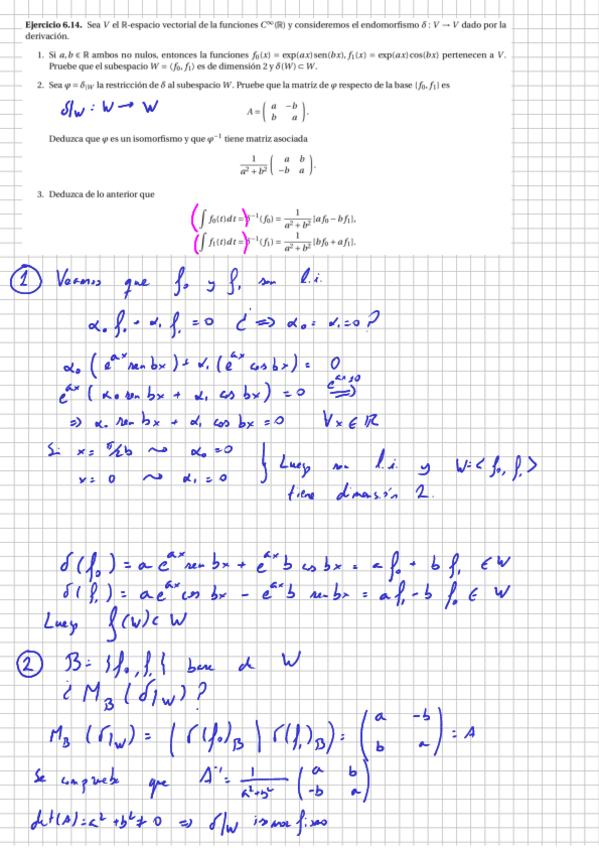 Ejercicio 6.14. Sea V el ℝ-espacio vectorial de la funciones C^∞(ℝ) y consideremos el endomorfismo δ : V → V dado por la
derivación.
1. Si a, b ∈ ℝ ambos no nulos, entonces la funciones f₀(x) = exp(ax)sen(bx), f₁(x) = exp(ax)cos(bx) pertenecen a V.
Pruebe que el subespacio W = ⟨f₀, f₁⟩ es de dimensión 2 y δ(W) ⊂ W.
2. Sea φ = δ|W la restricción de δ al subespacio W. Pruebe que la matriz de φ respecto de la base {f₀, f₁} es
δ|W : W → W
A = ( a -b
b a ).
Deduzca que φ es un isomorfismo y que φ⁻¹ tiene matriz asociada
1/(a² + b²) ( a b
-b a ).
3. Deduzca de lo anterior que
(∫ f₀(t)dt =) δ⁻¹(f₀) = 1/(a² + b²) [a f₀ − b f₁],
(∫ f₁(t)dt =) δ⁻¹(f₁) = 1/(a² + b²) [b f₀ + a f₁].
① Veamos que f₀ y f₁ son l.i.
α₀ f₀ + α₁ f₁ = 0 ¿ ⟹ α₀ = α₁ = 0 ?
α₀ (e^{ax} sen bx) + α₁ (e^{ax} cos bx) = 0
e^{ax} (α₀ sen bx + α₁ cos bx) = 0 ⟹ e^{ax}≠0
⟹ α₀ sen bx + α₁ cos bx = 0 ∀x ∈ ℝ
Si x = π/2b ⇝ α₀ = 0
x = 0 ⇝ α₁ = 0
} Luego son l.i. y W = <f₀, f₁>
tiene dimensión 2.
δ(f₀) = a e^{ax} sen bx + e^{ax} b cos bx = a f₀ + b f₁ ∈ W
δ(f₁) = a e^{ax} cos bx − e^{ax} b sen bx = a f₁ − b f₀ ∈ W
Luego δ(W) ⊂ W
② B = {f₀, f₁} base de W
¿ M_B (δ|W) ?
M_B (δ|W) = ( δ(f₀)_B | δ(f₁)_B ) = ( a -b
b a ) = A
Se comprueba que A⁻¹ = 1/(a²+b²) ( a b
-b a )
det(A) = a² + b² ≠ 0 ⟹ δ|W isomorfismo